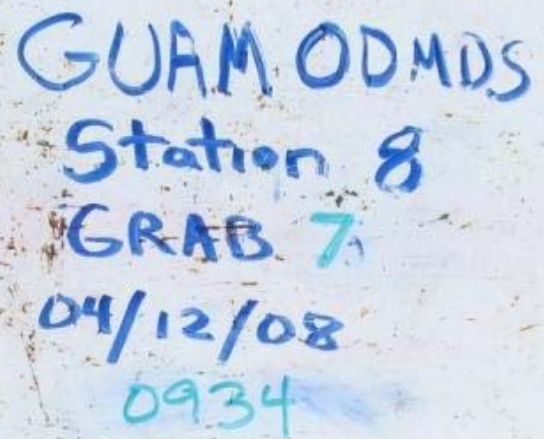 GUAM ODMDS
Station 8
GRAB 7
04/12/08
0934